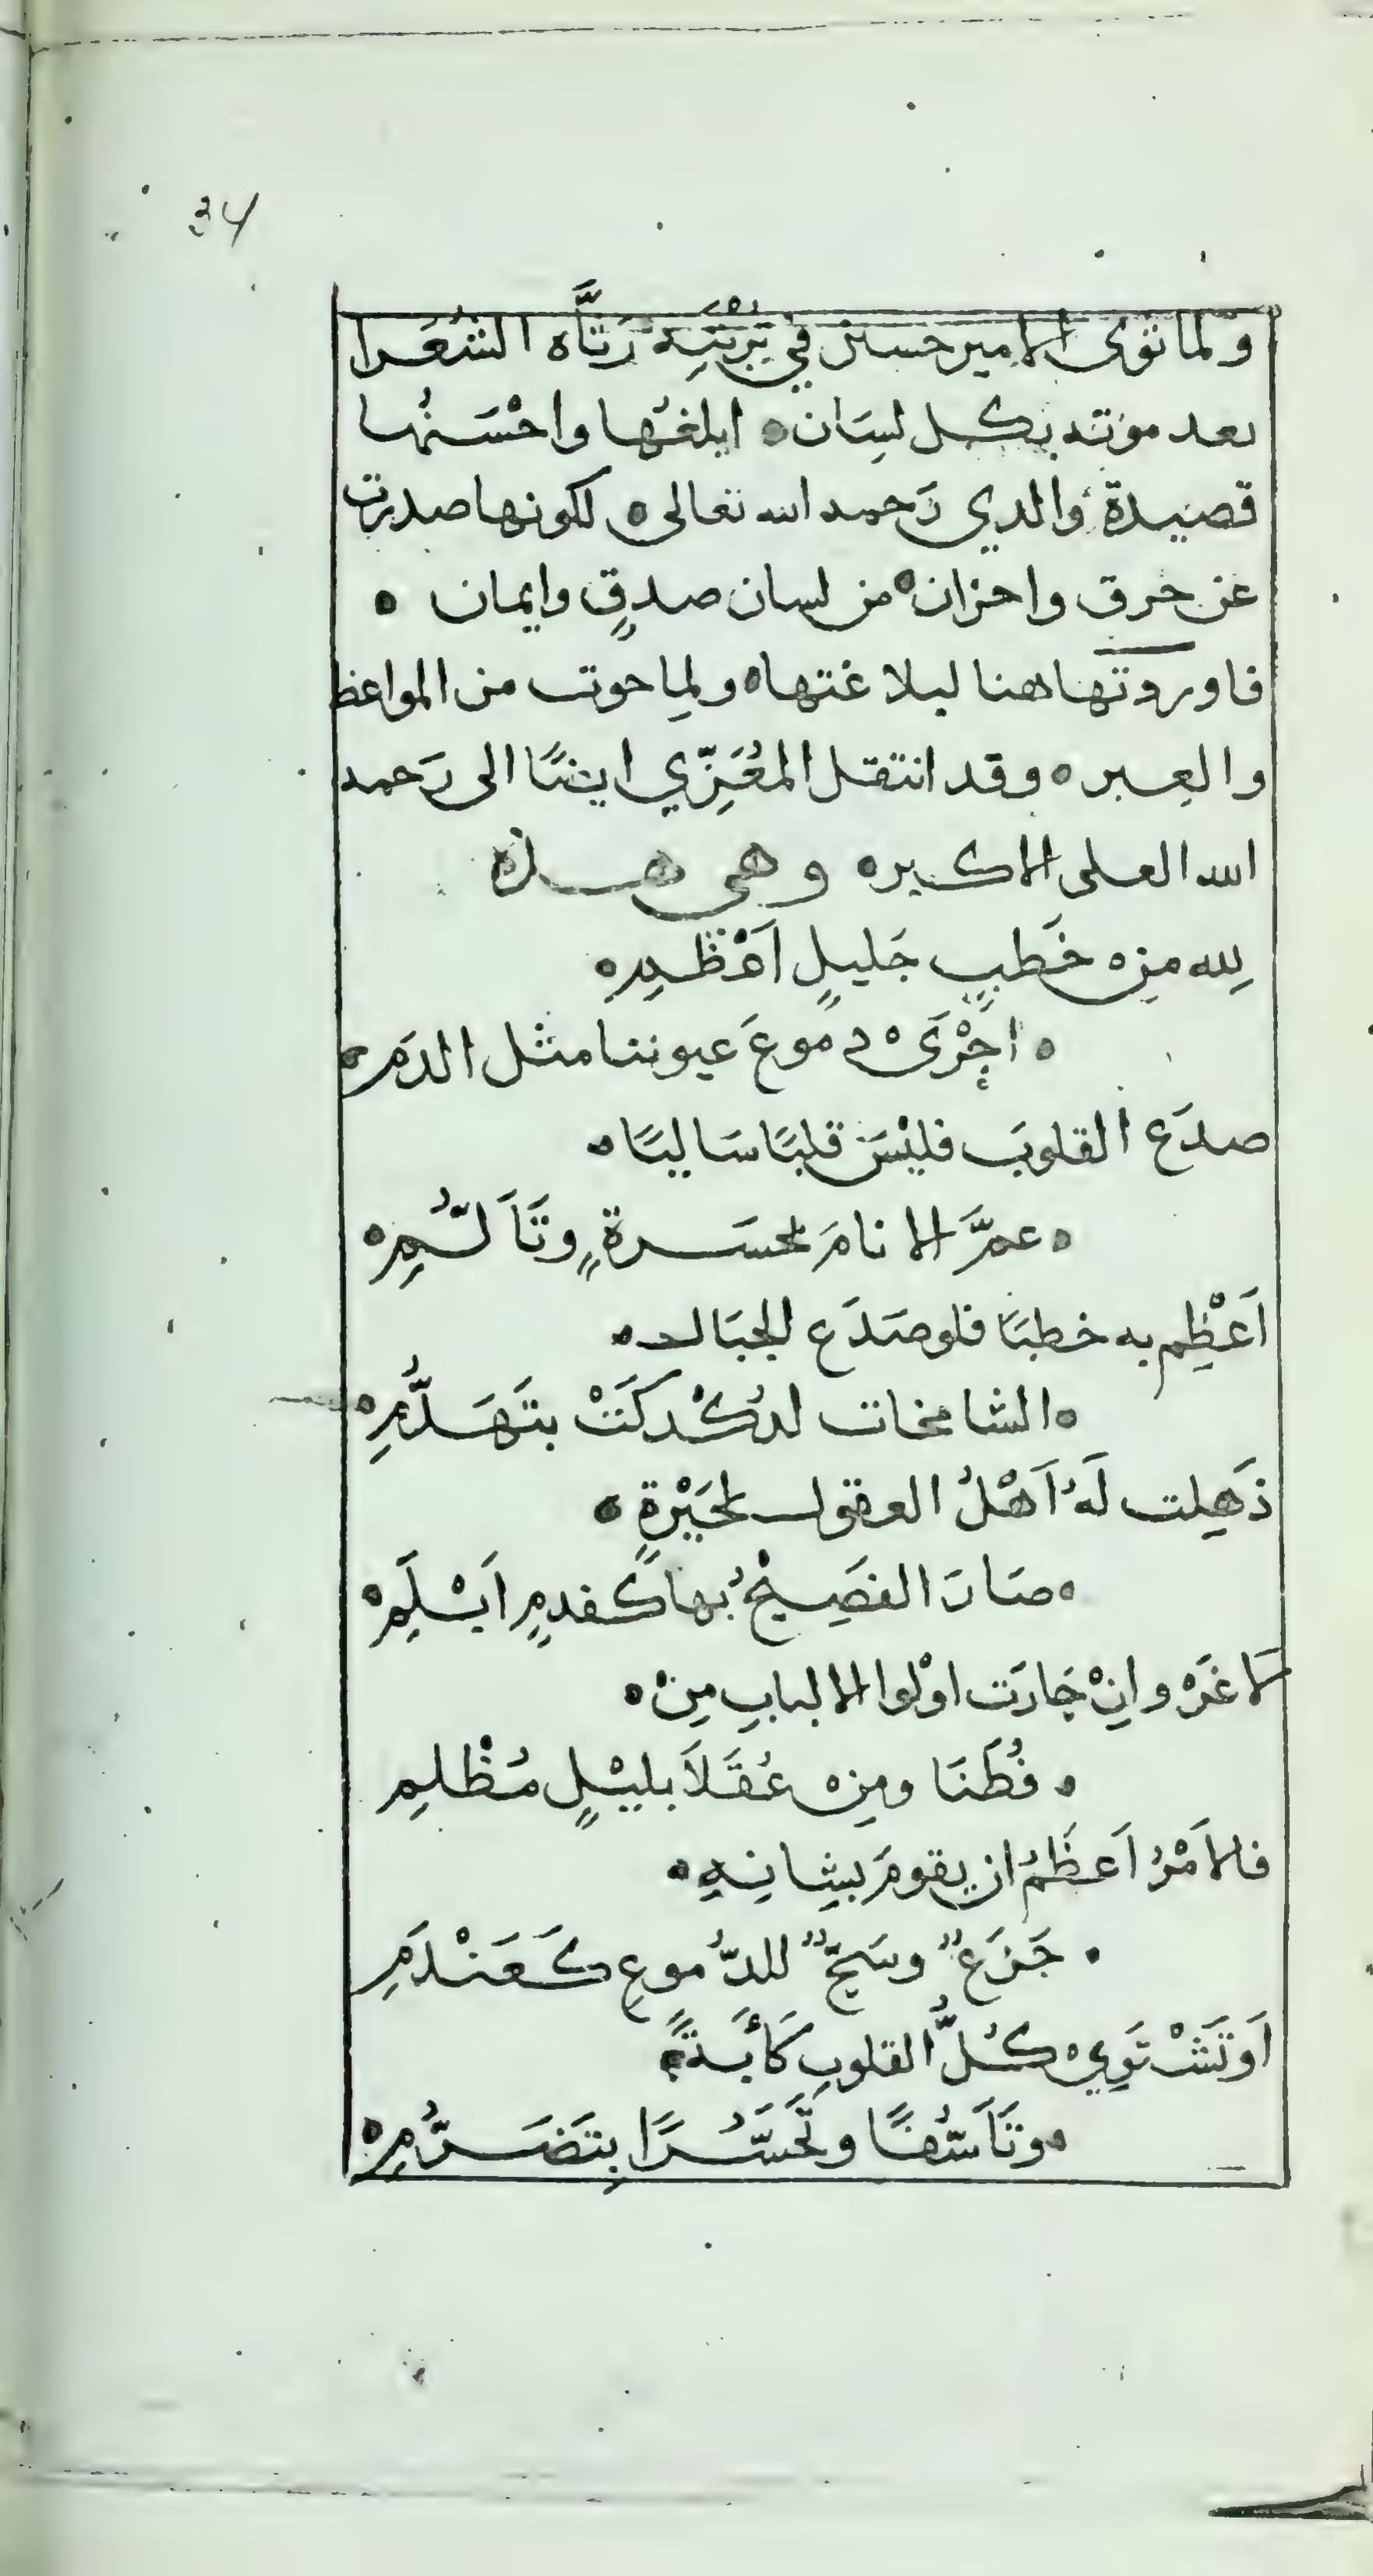 34
ولما ثوى الامير حسين في تُرْبَتِه رَثَّاه الشُعَرا
بعد موته بكل لسَان ه ابلغُها واحْسَنُها
قصيدة والدي رَحمه الله تعالى ه لكونها صدرت
عن حرق واحزان ه من لسان صدقٍ وايمان ه
فاوردتها هنا لبلاغتها ه ولِما حوت من المواعظ
والعِبر ه وقد انتقل المعُزِّي ايضًا الى رَحمه
الله العلى الاكبر ه وهي هذه
لله مِن خَطبٍ جَليلٍ اَعْظَمِ ه
ه اجْرَىْ دموعَ عيوننا مثل الدَم ه
صدَع القلوبَ فليْسَ قلبًا سَاليًا ه
ه عمَّ الانامَ بحسَرةٍ وتَاَلُّمِ ه
اَعْظِم به خطبًا فلو صَدَع الجبَال ه
ه الشامخات لدُكْدكَتْ بتَهَدُّمِ ه
ذَهِلت لَهُ اَهْلُ العقول بحَيْرةٍ ه
ه صَارَ الفَصِيحُ بها كَفدمٍ اَبْكَمِ ه
لا غَرْو وانْ حَارَت اوْلوا الالبابِ مِنْ ه
ه فُطَنَا ومِن عُقَلاَ بليْلٍ مُظْلِمِ
فالاَمْرُ اَعظَمُ ان يقومَ بِشانِهِ ه
ه جَزَعٌ وسَحٌّ للدُّموعِ كَعَنْدَمِ
اَو تَشْتَوِيْ كُلُّ القلوبِ كَأبَةً ه
ه وتَاَسُّفًا وتَحَسُّرًا بتَضَرُّمِ ه